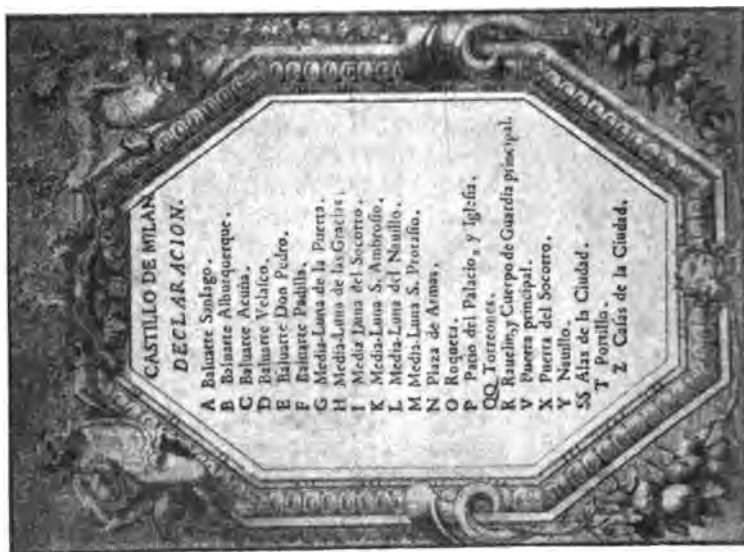 CASTILLO DE MILAN
DECLARACION.
A Baluarte Santago.
B Baluarte Alburquerque.
C Baluarte Acuña.
D Baluarte Velasco.
E Baluarte Don Pedro.
F Baluarte Padilla.
G Media-Luna de la Puerta.
H Media-Luna de las Gracias.
I Media Luna del Socorro.
K Media-Luna S. Ambrosio.
L Media-Luna del Nauillo.
M Media-Luna S. Protasio.
N Plaza de Armas.
O Roqueta.
P Patio del Palacio, y Iglesia.
QQ Torreones.
R Rauelin, y Cuerpo de Guardia principal.
V Puerta principal.
X Puerta del Socorro.
Y Nauillo.
SS Alas de la Ciudad.
T Portillo.
Z Casas de la Ciudad.